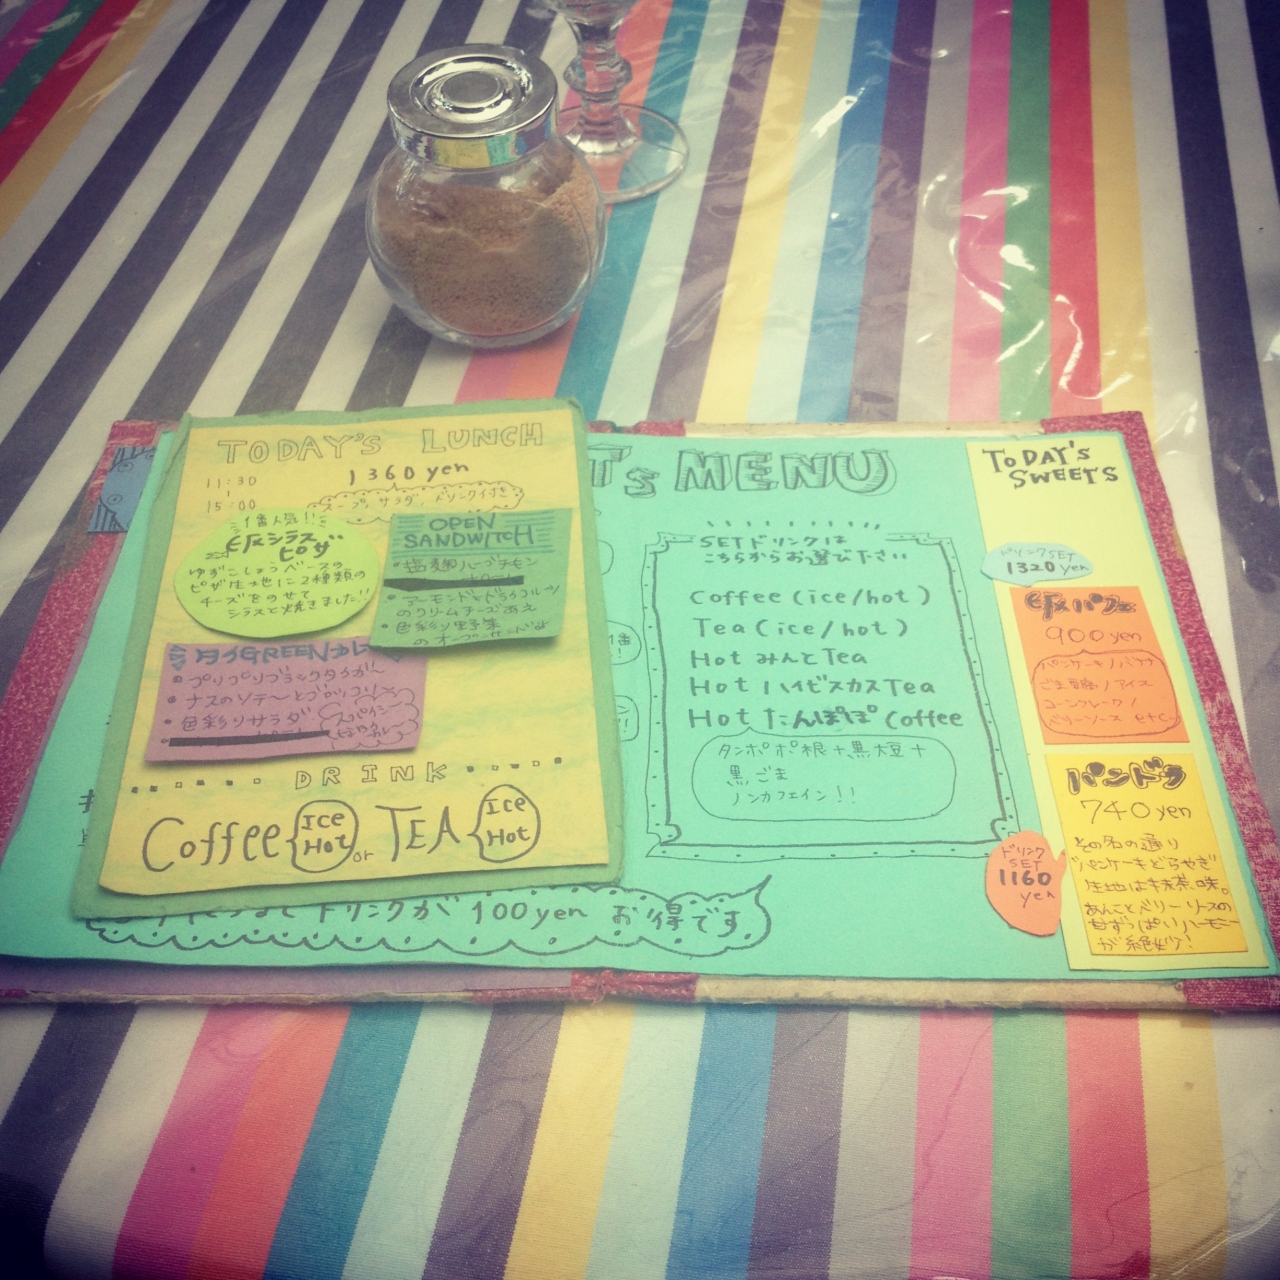 TODAY'S LUNCH
1360 yen
11:30
15:00
スープ、サラダ、ドリンク付き
1番人気!!
シラス
ピザ
ゆずこしょうベースの
ピザ生地に2種類の
チーズをのせて
シラスと焼きました!!
OPEN
SANDWITCH
・塩麹ハーブチキン
・アーモンドとドライフルーツ
のクリームチーズあえ
・色彩り野菜
のオープンサンド
タイGREENカレー
・プリプリブラックタイガー
・ナスのソテーとブロッコリー
・色彩りサラダ
スパイシー
DRINK
Coffee { Ice Hot or TEA { Ice Hot
ドリンクが100yenお得です
Ts MENU
SETドリンクは
こちらからお選び下さい
Coffee (ice/hot)
Tea (ice/hot)
Hot みんとTea
Hot ハイビスカスTea
Hot たんぽぽ Coffee
タンポポ根+黒大豆+
黒ごま
ノンカフェイン!!
TODAY'S
SWEETS
ドリンクSET
1320 yen
パフェ
900 yen
パンケーキ/バナナ
ごま豆腐/アイス
コーンフレーク/
ベリーソース etc
パンドラ
740 yen
その名の通り
パンケーキどらやき
生地は抹茶味。
あんことベリーソースの
甘ずっぱいハーモニー
が絶妙!
ドリンク
SET
1160
yen